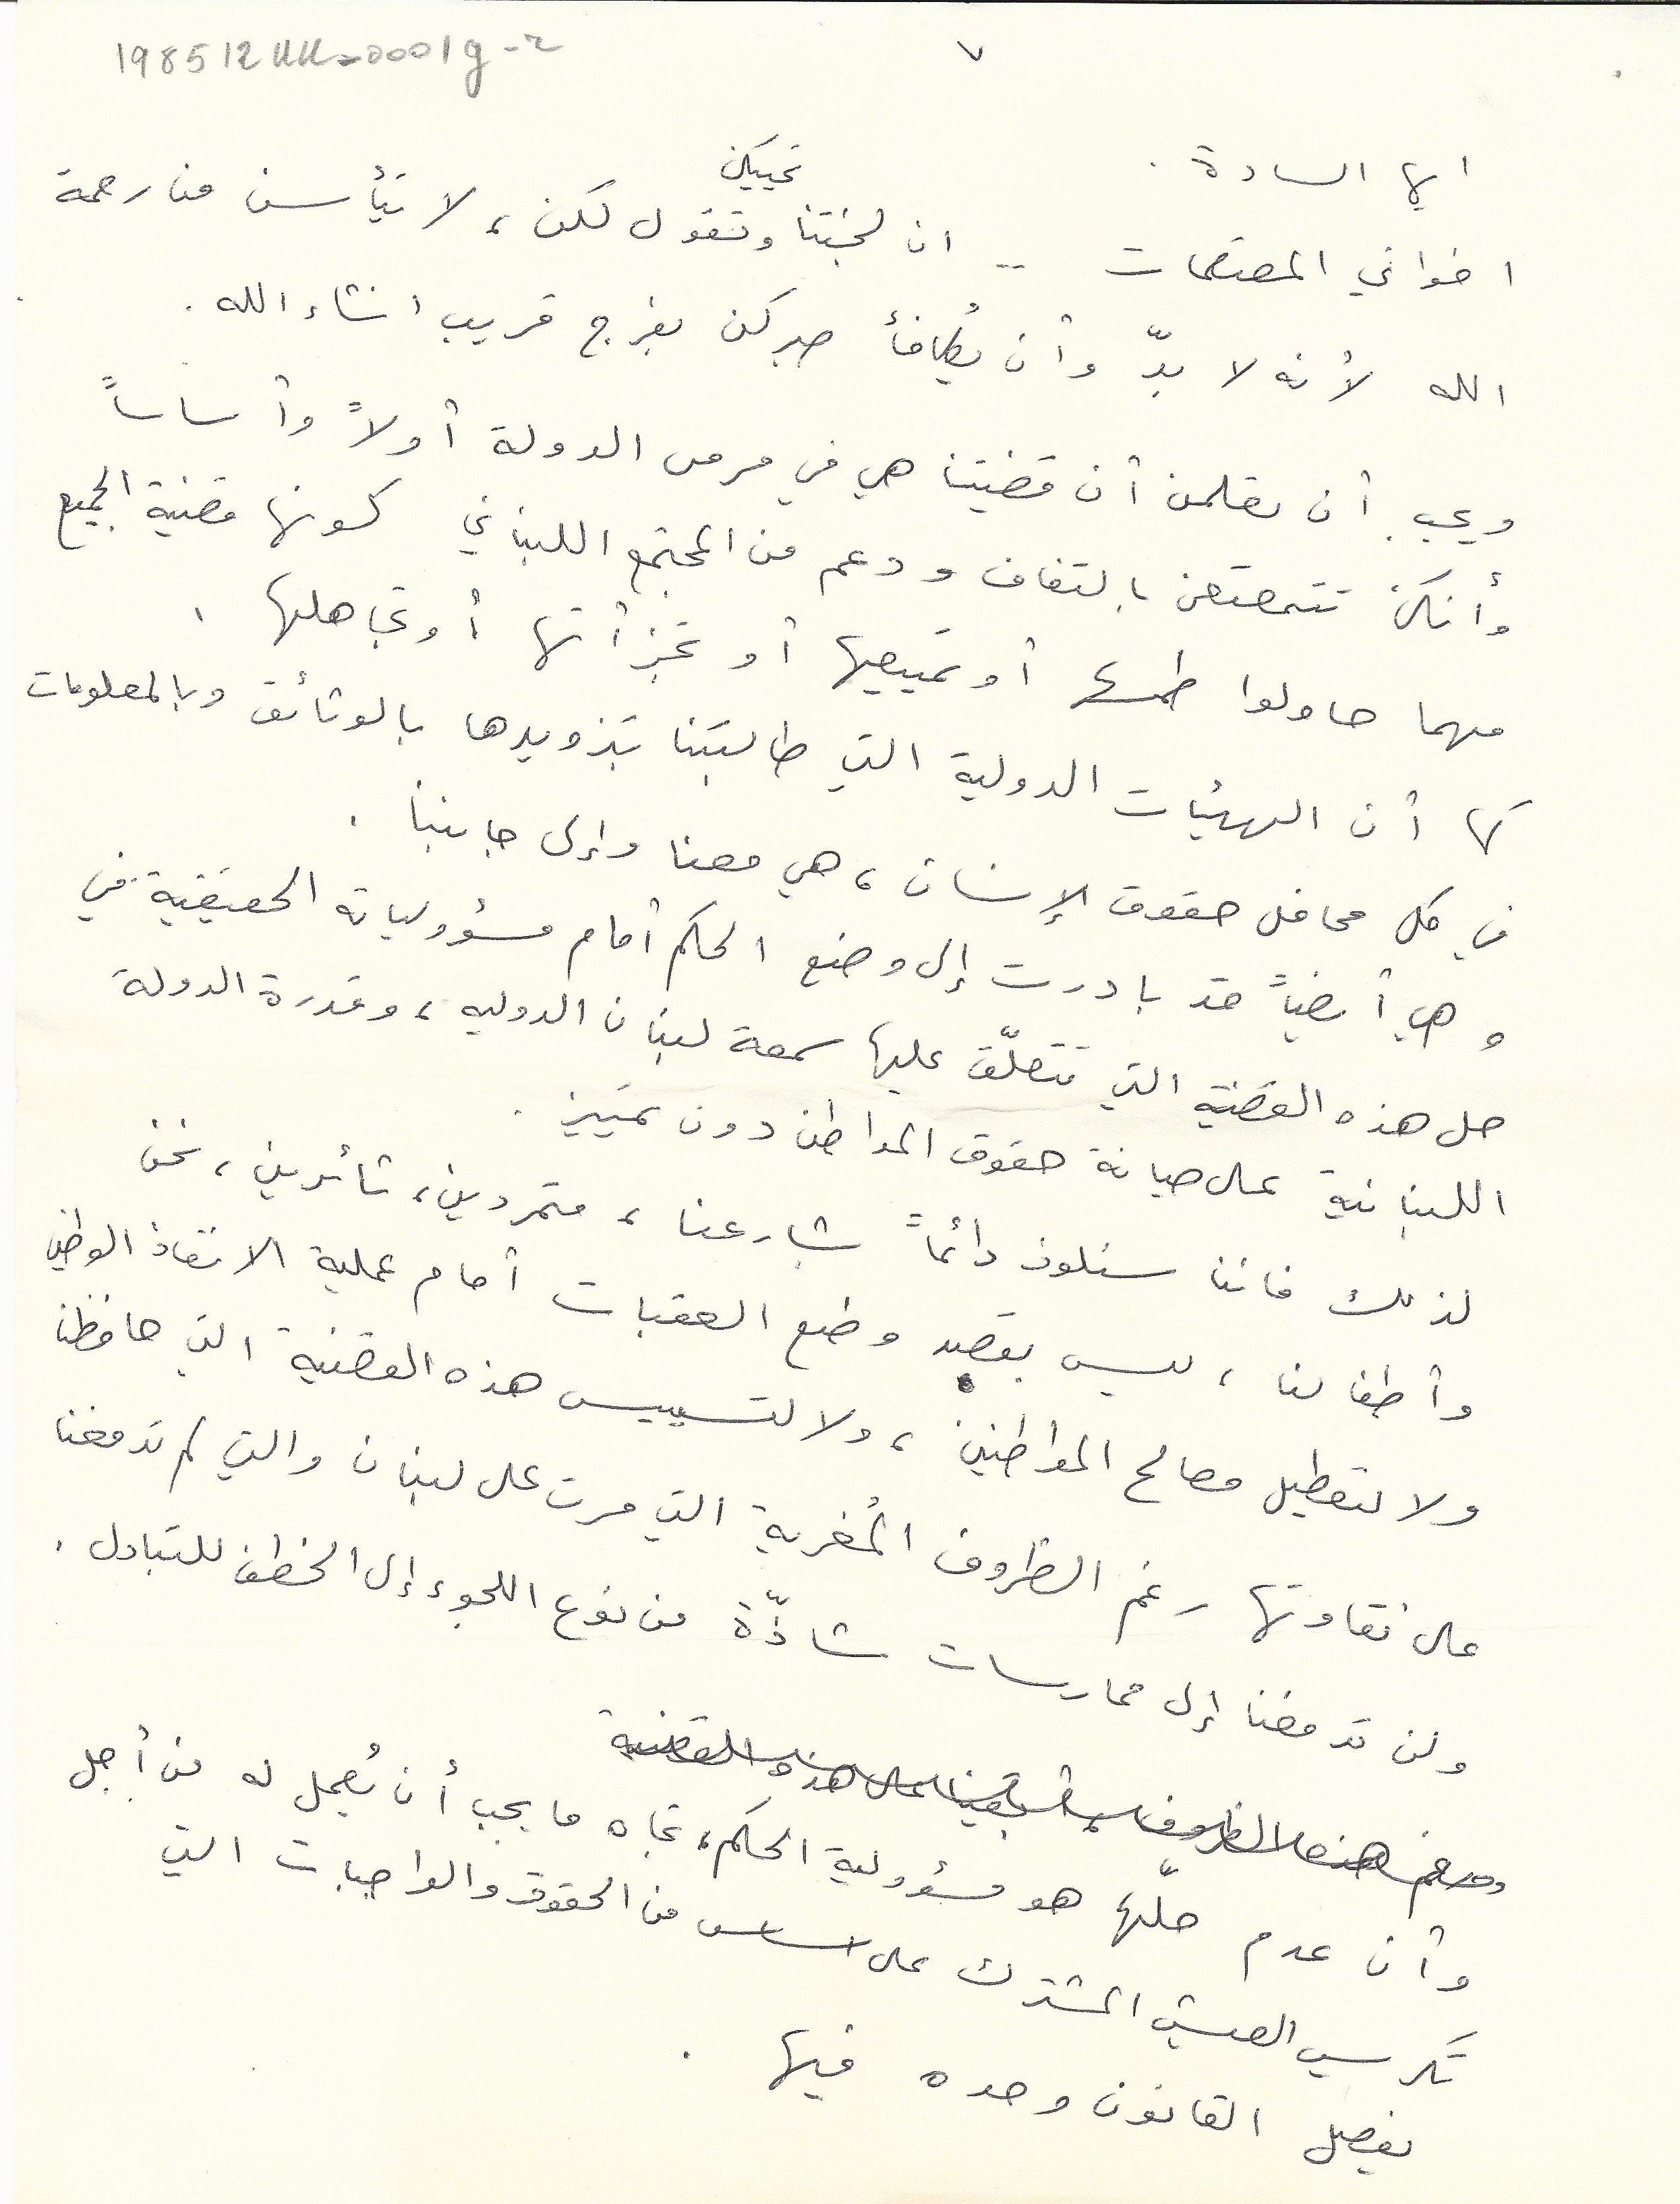 198512UU-0001g-2
٧
ايها السادة .
اخواتي المعتصمات .. ان لجنتنا تحييكن وتقول لكن ، لا تيأسن من رحمة
الله لأنه لا بدّ وأن يُكافأ صبركن بفرج قريب انشاء الله .
ويجب أن تعلمن أن قضيتنا هي في مرمى الدولة أولاً وأساساً
وأنكنّ تتمتعن بالتفاف ودعم من المجتمع اللبناني كونها قضية الجميع
مهما حاولوا طمسها أو تمييعها أو تجزأتها أو تجاهلها .
كما أن الهيئات الدولية التي طالبتنا بتزويدها بالوثائق وبالمعلومات
في كل محافل حقوق الإنسان ، هي معنا وإلى جانبنا .
وهي أيضاً قد بادرت إلى وضع الحكم أمام مسؤولياته الحقيقية في
حل هذه القضية التي تتعلّق عليها سمعة لبنان الدوليه ، وقدرة الدولة
اللبنانية على صيانة حقوق المواطن دون تمييز .
لذلك فاننا سنلوذ دائماً بشارعنا ، متمردين ، ثائرين ، نحن
وأطفالنا ، ليس بقصد وضع العقبات أمام عملية الانقاذ الوطني
ولا لتعطيل مصالح المواطنين ، ولا لتسييس هذه القضية التي حافظنا
على نقاوتها رغم الظروف المُغرية التي مرت على لبنان والتي لم تدفعنا
ولن تدفعنا إلى ممارسات شاذّة من نوع اللجوء إلى الخطف للتبادل .
ورغم هذه الظروف هذه القضية
وأن عدم حلّها هو مسؤولية الحكم ، تجاه ما يجب أن يُعمل له من أجل
تكريس العيش المشترك على اساس من الحقوق والواجبات التي
يفصل القانون وحده فيها .